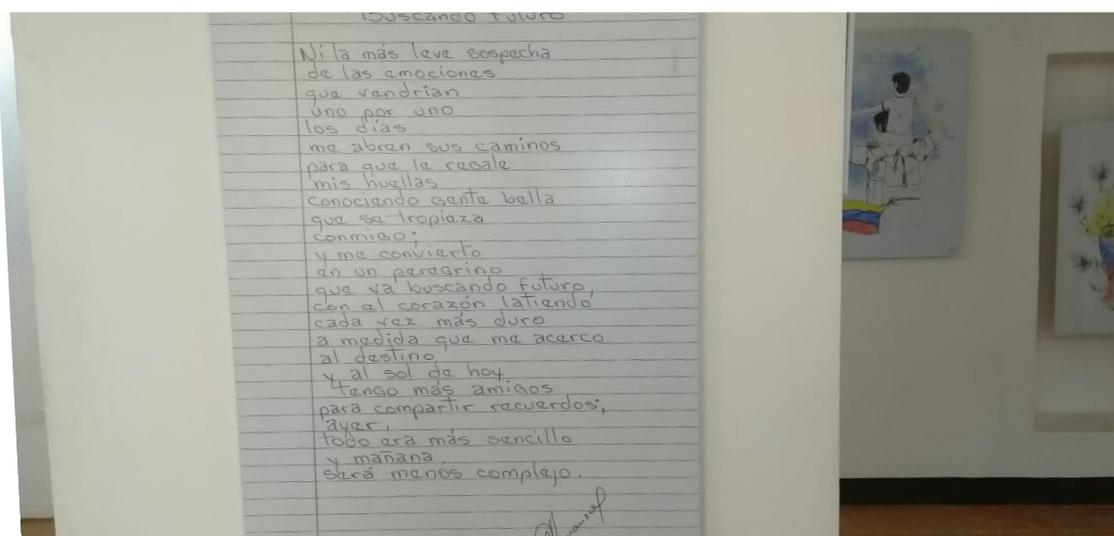 Buscando futuro
Ni la más leve sospecha
de las emociones
que vendrian
uno por uno
los días
me abren sus caminos
para que le regale
mis huellas
conociendo gente bella
que se tropieza
conmigo;
y me convierto
en un peregrino
que va buscando futuro,
con el corazón latiendo
cada vez más duro
a medida que me acerco
al destino
y al sol de hoy
tengo más amigos
para compartir recuerdos;
ayer,
todo era más sencillo
y mañana
será menos complejo.